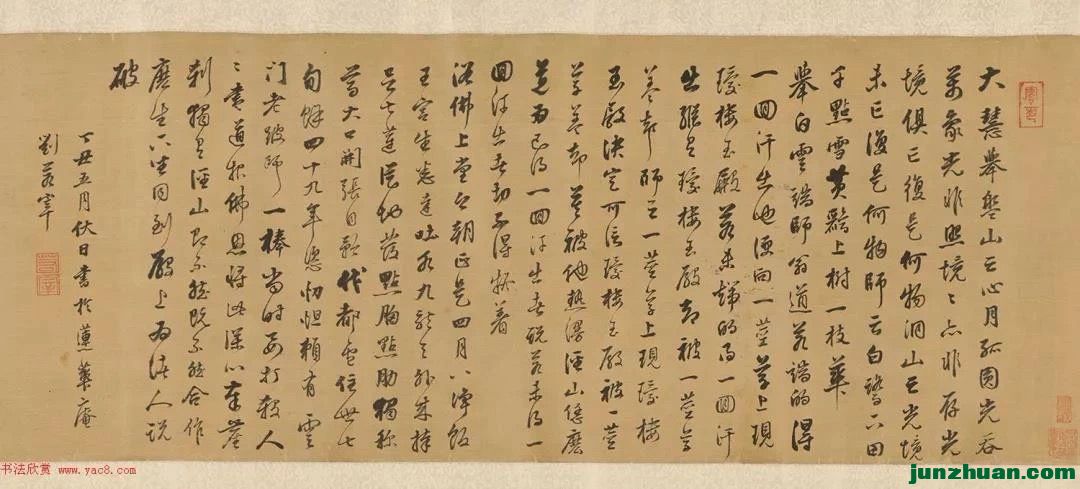 大慧舉盤山云心月孤圓光吞
萬象光非照境〻亦非存光
境俱亡復是何物洞山云光境
未亡復是何物師云白鷺下田
千點雪黃鸝上樹一枝華
舉白雲端師翁道若端的得
一回汗出也便向一莖草上現
瓊樓玉殿若未端的得一回汗
出縱有瓊樓玉殿却被一莖草
蓋却師云一莖草上現瓊樓
玉殿決定可信瓊樓玉殿被一莖
草蓋却莫被他熱謾徑山恁麼
道為已得一回汗出者說若未得一
回汗出者切不得疑着
浴佛上堂今朝正是四月八淨飯
王宮生悉達吐水九龍天外來捧
足七蓮從地發點胸點肋獨稱
尊大口開張自代都盧住世七
旬餘四十九年恣忉怛賴有雲
門老跛師一棒當時要打殺人
〻盡道報佛恩將此深心奉塵
刹獨有徑山即不然既不然合作
麼生下坐同到殿上為諸人說
破
丁丑五月伏日書於蕙華庵
劉若宰
书法欣赏 www.yac8.com
junzhuan.com